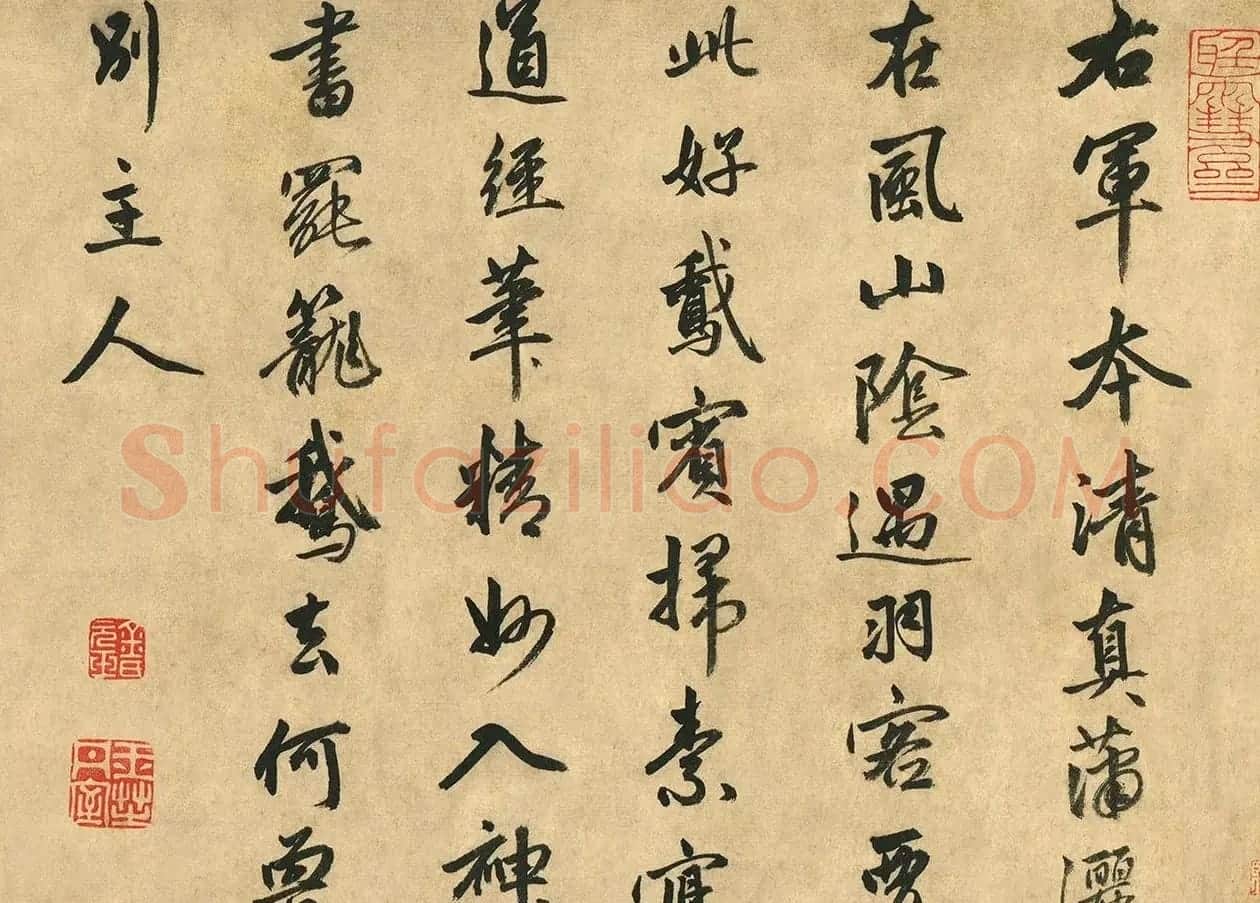 右軍本清真瀟灑
在風山陰遇羽客要
此好鵞賓掃素寫
道經筆精妙入神
書罷籠鵞去何曾
別主人
Shufaziliao.COM